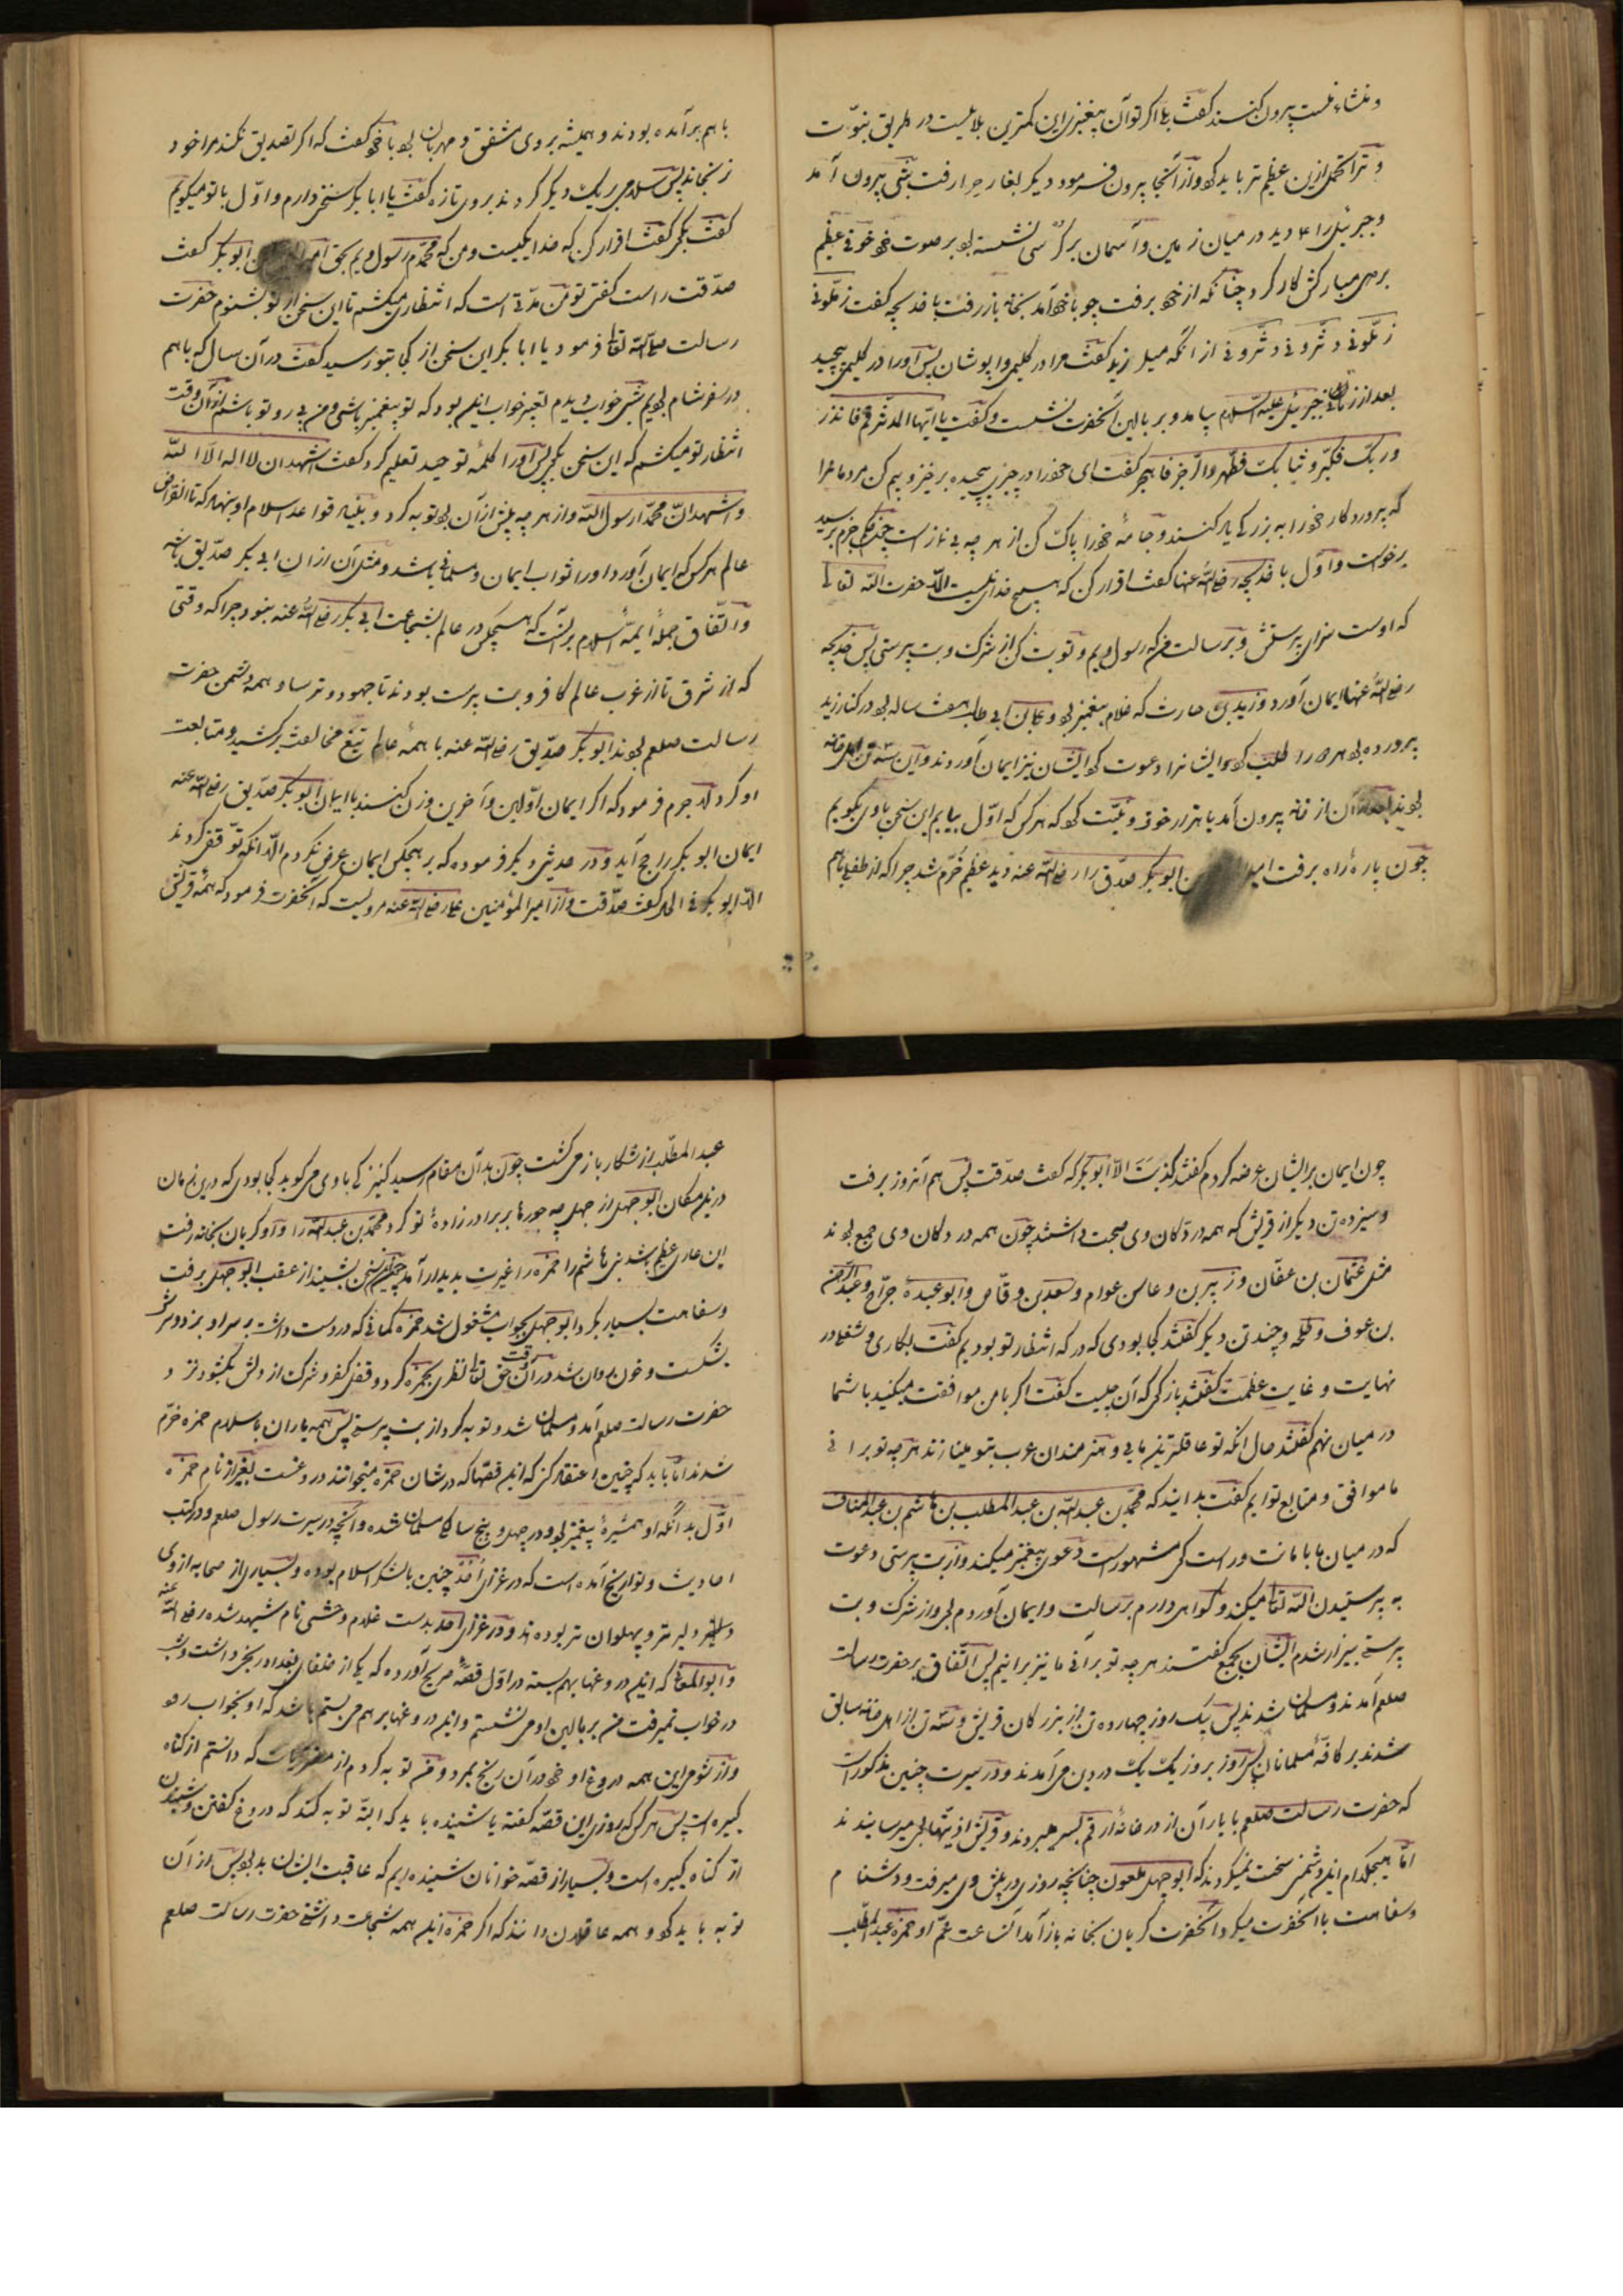 و منشاء تست بیرون کنند گفت بلی اگر تو آن پیغمبری این کمترین بلائیست در طریق نبوّت
و ترا تحمّل ازین عظیم تر باید کرد و از آنجا بیرون فرمود دیگر بغار حرا رفت شبی بیرون آمد
و جبرئیل را دید در میان زمین و آسمان بر کرسی نشسته بود بر صورت خود خوفی عظیم
بروی مبارکش کار کرد چنانکه از خود برفت چو با خود آمد بخانه باز رفت با خدیجه گفت زمّلونی
زمّلونی و دثّرونی دثّرونی از آنکه میلرزید گفت مرا در گلیمی واپوشان پس او را در گلیمی پیچید
بعد از زمانی جبرئیل علیه السلام بیامد و بر بالین آنحضرت نشست و گفت یا ایّها المدّثر قم فانذر
و ربّک فکبّر و ثیابک فطهّر والرّجز فاهجر گفت ای خود را در چیزی پیچیده برخیز و بیم کن مردمانرا
که پروردگار خود را به بزرگی یاد کنند و جامهٔ خود را پاک کن از هر چه بی نماز است
برخواست و اوّل با خدیجه رضی الله عنها گفت اقرار کن که هیچ خدای نیست الّا حضرت الله تعالی
که اوست سزای پرستش و برسالت من که رسول ویم و توبت کن از شرک و بت پرستی پس خدیجه
رضی الله عنها ایمان آورد و زید بن حارث که غلام پیغمبر بود و علی بن ابی طالب هفت ساله بود در کنار زید
پرورده بود هر دو را طلب کرد و ایشانرا دعوت کرد ایشان نیز ایمان آوردند و این سه تن اهل خانه
بودند بعد از آن از خانه بیرون آمد با هزار خوف و نیّت کرد که هر کس که اوّل بیابم این سخن با وی بگویم
چون پارهٔ راه برفت ابوبکر صدّیق را رضی الله عنه دید عظیم خرّم شد چرا که از طفلی باهم
باهم برآمده بودند و همیشه بروی مشفق و مهربان بود با خود گفت که اگر تصدیق نکند مرا خود
نرنجاند پس سلام بر یک دیگر کردند بروی تازه گفت یا ابابکر سخنی دارم و اوّل با تو میگویم
گفت بگوی گفت اقرار کن که خدا یکیست و من که محمّدم رسول ویم بحق ابوبکر گفت
صدّقت راست گفتی تو من مدّتی است که انتظار میکشم تا این سخن از تو بشنوم حضرت
رسالت صلی الله تعالی فرمود یا ابابکر این سخن از کجا بتو رسید گفت در آن سال که باهم
در سفر شام بودیم شبی خواب دیدم تعبیر خواب این بود که تو پیغمبر باشی و من پی رو تو باشم از آن وقت
انتظار تو میکشم که این سخن بگوی پس او را کلمهٔ توحید تعلیم کرد گفت اشهد ان لا اله الّا الله
و اشهد انّ محمّداً رسول الله و از هر چه پیش از آن بود توبه کرد و بنیاد قواعد اسلام او بنهاد که تا انقراض
عالم هر کس که ایمان آورد او را ثواب ایمان و مسلمانی باشد و مثل آن از آن ابی بکر صدّیق باشد
و اتّفاق جملهٔ ایمّهٔ اسلام بر آنست که هیچکس در عالم بشجاعت ابی بکر رضی الله عنه نبود چرا که وقتی
که از شرق تا از غرب عالم کافر و بت پرست بودند تا جهود و ترسا و همه دشمن حضرت
رسالت صلعم بودند ابوبکر صدّیق رضی الله عنه با همهٔ عالم تیغ مخالفت برکشید و متابعت
او کرد لاجرم فرمود که اگر ایمان اوّلین و آخرین وزن کنند با ایمان ابوبکر صدّیق رضی الله عنه
ایمان ابوبکر راجح آید و در حدیثی دیگر فرموده که بر هیچکس ایمان عرض نکردم الّا آنکه توقّف کردند
الّا ابوبکر فی الحال گفت صدّقت و از امیرالمؤمنین علی رضی الله عنه مرویست که آنحضرت فرمود که همهٔ قریش
چون ایمان بر ایشان عرضه کردم گفتند کذبتَ الّا ابوبکر که گفت صدّقت پس هم آنروز برفت
و سیزده تن دیگر از قریش که همه در دکّان وی صحبت داشتند چون همه در دکان وی جمع بودند
مثل عثمان بن عفّان و زبیر بن و عاس عوام و سعد بن وقّاص و ابوعبیدهٔ جرّاح و عبدالرحمن
بن عوف و طلحه و چند تن دیگر گفتند کجا بودی که در که انتظار تو بودیم گفت بکاری و شغلی در
نهایت و غایت عظمت گفتند بازگوی که آن چیست گفت اگر با من موافقت میکنید با شما
در میان نهم گفتند حال آنکه تو عاقلترین مایی و هنرمندان عرب بتو مینازند هر چه تو برانی
ما موافق و متابع توایم گفت بدانید که محمّد بن عبدالله بن عبدالمطلب بن هاشم بن عبدالمناف
که در میان ما بامانت و راست گوی مشهور است دعوی پیغمبری میکند و از بت پرستی دعوت
به پرستیدن الله تعالی میکند و گواهی دارم برسالت و ایمان آوردم بوی و از شرک و بت
پرستی بیزار شدم ایشان بجمع گفتند هر چه تو برانی ما نیز برانیم پس اتّفاق بر حضرت رسالت
صلعم آمدند و مسلمان شدند پس یک روز چهارده تن از بزرگان قریش و سه تن از اهل خانه سابق
شدند بر کافّهٔ مسلمانان پس روز بروز یک یک در دین می‌آمدند و در سیرت چنین مذکور است
که حضرت رسالت صلعم با یاران از در خانهٔ ارقم بسر میبردند و قریش اذیّتها بوی میرسانیدند
امّا هیچکدام این دشمنی سخت نمیکردند که ابوجهل ملعون چنانچه روزی در پیش وی میرفت و دشنام
و سفاهت با آنحضرت میکرد آنحضرت گریان بخانه باز آمد آن ساعت عمّ او حمزهٔ عبدالمطّلب
عبدالمطّلب از شکار باز می‌گشت چون بدان مقام رسید کنیزکی با وی می‌گوید کجا بودی که درین زمان
درین مکان ابوجهل از جهل چه جورها بر برادرزادهٔ تو کرد محمّد بن عبدالله را و او گریان بخانه رفت
این عاری عظیم باشد بنی هاشم را حمزه را غیرت بدیدار آمد چون این سخن بشنید از عقب ابوجهل برفت
و سفاهت بسیار بکرد ابوجهل بجواب مشغول شد حمزه کمانی که در دست داشت بر سر او بزد و سرش
بشکست و خون روان شد در آن وقت حق تعالی نظری بحمزه کرد و قفل کفر و شرک از دلش بگشود نزد
حضرت رسالت صلعم آمد و مسلمان شد و توبه کرد از بت پرستی پس همه یاران باسلام حمزه خرّم
شدند امّا باید که چنین اعتقاد کنی که این قصّها که در شان حمزه میخوانند دروغست بغیر از نام حمزه
اوّل بدانکه او همشیرهٔ پیغمبر بود و در چهل و پنج سالگی مسلمان شده و آنچه در سیرت رسول صلعم و در کتب
احادیث و تواریخ آمده است که در غزای اُحُد چنین با لشکر اسلام بوده و بسیاری از صحابه از وی
دلیر تر و پهلوان تر بوده‌اند و در غزای احد بدست غلام وحشی نام شهید شده رضی الله عنه
و ابوالمعالی که این دروغها بهم بسته در اوّل قصّه صریح آورده که یکی از خلفای بغداد رنجی داشت و شب
در خواب نمیرفت من بر بالین او می‌نشستم و این دروغها بر هم می‌بستم باشد که او بخواب رود
و از شومی این همه دروغ او خود در آن رنج بمرد و من توبه کردم از که دانستم از گناه
کبیره است پس هر کس که روزی این قصّه گفته یا شنیده باید که البتّه توبه کند که دروغ گفتن و شنیدن
از گناه کبیره است و بسیار از قصّه خوانان شنیده‌ایم که عاقبت ایشان بد بود پس از آن
توبه باید کرد و همه عاقلان دانند که اگر حمزه این همه شجاعت داشتی حضرت رسالت صلعم